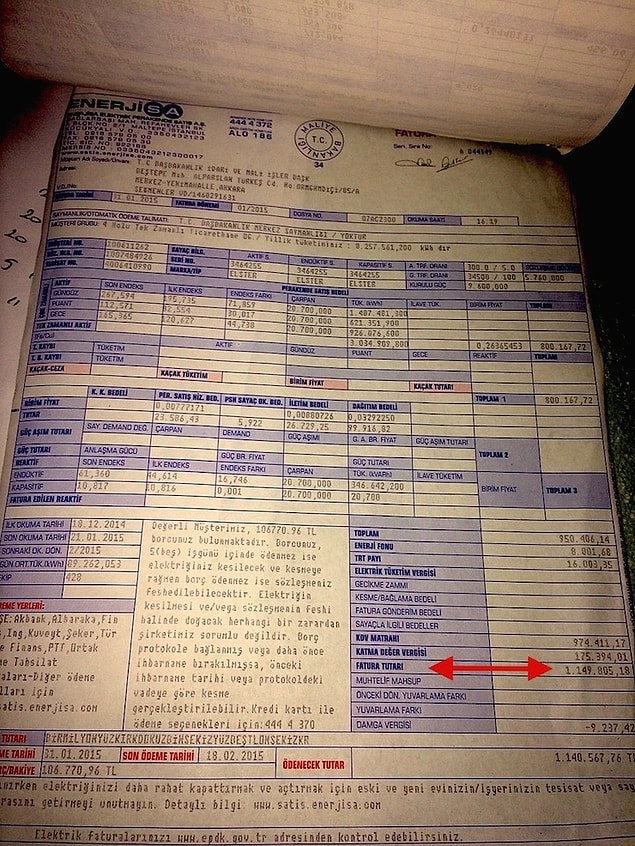 ENERJİSA
444 4 372
ALO 186
T.C. MALİYE BAKANLIĞI
34
FATURA
Seri, Sıra No.: A
www.satis.enerjisa.com
Müşteri Adı Soyadı/Unvanı: T.C BAŞBAKANLIK İDARİ VE MALİ İŞLER BAŞK
Adres: BEŞTEPE Mah. ALPARSLAN TÜRKEŞ Cd. No:
MERKEZ-YENİMAHALLE, ANKARA
V.D./No: VD/1460291631
31.01.2015 FATURA DÖNEMİ 01/2015 DOSYA NO 07AC2300 OKUMA SAATİ 16.19
SAYMANLIK/OTOMATİK ÖDEME TALİMATI : T.C. BAŞBAKANLIK MERKEZ SAYMANLIĞI / YOKTUR
MÜŞTERİ GRUBU: 4 Nolu Tek Zamanlı Ticarethane OG / Yıllık tüketiminiz: 8.257.561,200 kWh dır
100611262 SAYAÇ BİLG. AKTİF S. ENDÜKTİF S. KAPASİTİF S. A. TRF. ORANI 300.0 / 5.0
1007484926 SERİ NO. 3464255 3464255 3464255 G. TRF. ORANI 34500 / 100 5.760,000
4006410990 MARKA/TİP ELSTER ELSTER ELSTER KURULU GÜÇ 9.600,000
PERAKENDE SATIŞ BEDELİ
AKTİF SON ENDEKS İLK ENDEKS ENDEKS FARKI ÇARPAN TÜK. (kWh) İLAVE TÜK. BİRİM FİYAT TOPLAM
GÜNDÜZ 267,594 195,735 71,859 20.700,000 1.487.481,300
PUANT 112,571 82,554 30,017 20.700,000 621.351,900
GECE 165,365 120,627 44,738 20.700,000 926.076,600
TEK ZAMANLI AKTİF 3.034.909,800 0,26365453 800.167,72
T. KAYBI AKTİF GÜNDÜZ PUANT GECE REAKTİF TOPLAM
T. B. KAYBI TÜKETİM
KAÇAK-CEZA KAÇAK TÜKETİM BİRİM FİYAT KAÇAK TUTARI
K. K. BEDELİ PER. SATIŞ HİZ. BED. PSH SAYAÇ OK. BED. İLETİM BEDELİ DAĞITIM BEDELİ TOPLAM 1 800.167,72
BİRİM FİYAT 0,00777171 0,00880726 0,03292250
TUTAR 23.586,43 5,922 26.729,25 99.916,82
GÜÇ AŞIM TUTARI SAY. DEMAND DEĞ. ÇARPAN DEMAND GÜÇ AŞIMI G. A. BR. FİYAT GÜÇ AŞIM TUTARI
GÜÇ TUTARI ANLAŞMA GÜCÜ GÜÇ BR. FİYAT GÜÇ TUTARI TOPLAM 2
REAKTİF SON ENDEKS İLK ENDEKS ENDEKS FARKI ÇARPAN TÜK. (kVArh) İLAVE TÜKETİM BİRİM FİYAT TOPLAM 3
ENDÜKTİF 61,360 44,614 16,746 20.700,000 346.642,200
KAPASİTİF 10,817 10,816 0,001 20.700,000 20,700
FATURA EDİLEN REAKTİF
İLK OKUMA TARİHİ 18.12.2014
SON OKUMA TARİHİ 21.01.2015
SONRAKİ OK. DÖN. 2/2015
GÜN.ORT.TÜK.(kWh) 89.262,053
EKİP 428
Değerli Müşterimiz, 106770.96 TL
borcunuz bulunmaktadır. Borcunuz,
5(beş) işgünü içinde ödenmez ise
elektriğiniz kesilecek ve kesmeye
rağmen borç ödenmez ise sözleşmeniz
feshedilebilecektir. Elektriğin
kesilmesi ve/veya sözleşmenin feshi
halinde doğacak herhangi bir zarardan
şirketimiz sorumlu değildir. Borç
protokole bağlanmış veya daha önce
ihbarname bırakılmışsa, önceki
ihbarname tarihi veya protokoldeki
vadeye göre kesme
gerçekleştirilebilir.Kredi kartı ile
ödeme seçenekleri için:444 4 370
TOPLAM 950.406,14
ENERJİ FONU 8.001,68
TRT PAYI 16.003,35
ELEKTRİK TÜKETİM VERGİSİ
GECİKME ZAMMI
KESME/BAĞLAMA BEDELİ
FATURA GÖNDERİM BEDELİ
SAYAÇLA İLGİLİ BEDELLER
KDV MATRAHI 974.411,17
KATMA DEĞER VERGİSİ 175.394,01
FATURA TUTARI 1.149.805,18
MUHTELİF MAHSUP
ÖNCEKİ DÖN. YUVARLAMA FARKI
YUVARLAMA FARKI
DAMGA VERGİSİ -9.237,42
REME YERLERİ:
ŞE:Akbank,Albaraka,Fin
s,Ing,Kuveyt,Şeker,Tür
e Finans,PTT,Ortak
me Tahsilat
aları-Diğer ödeme
lları için
satis.enerjisa.com
TUTARI BİRMİLYONYÜZKIRKDOKUZBİNSEKİZYÜZBEŞTLONSEKİZKR
ME TARİHİ 31.01.2015 SON ÖDEME TARİHİ 18.02.2015 ÖDENECEK TUTAR 1.140.567,76 TL
RÇ/BAKİYE 106.770,96 TL
ınırken elektriğinizi daha rahat kapattırmak ve açtırmak için eski ve yeni evinizin/işyerinizin tesisat veya say
rasını getirmeyi unutmayın. Detaylı bilgi: www.satis.enerjisa.com
Elektrik faturalarınızı www.epdk.gov.tr adresinden kontrol edebilirsiniz.